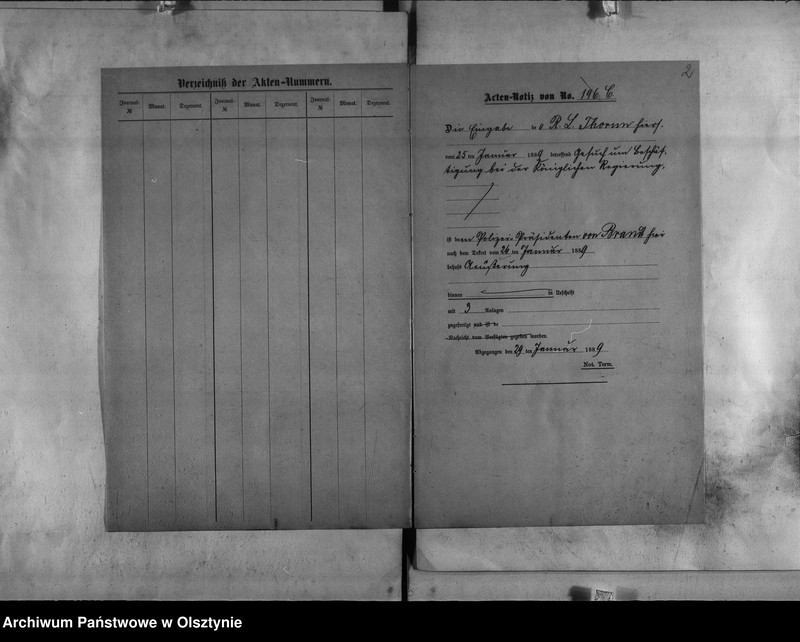 Verzeichniß der Akten-Nummern.
Journal- № Monat. Dezernent. Journal- № Monat. Dezernent. Journal- № Monat. Dezernent.
2
Acten-Notiz von No. 196. C.
Die Eingabe de s R. L. Thorun hiers.
vom 25 ten Januar 1889 betreffend Gesuch um Beschäf-
tigung bei der Königlichen Regierung,
ist dem Polizei-Präsidenten von Brandt hier
nach dem Dekret vom 26 ten Januar 1889
behufs Aeußerung
binnen in Urschrift
mit 3 Anlagen
zugefertigt und ist de
Nachricht vom Verfügten gegeben worden.
Abgegangen den 29 ten Januar 1889
Not. Term.
Archiwum Państwowe w Olsztynie